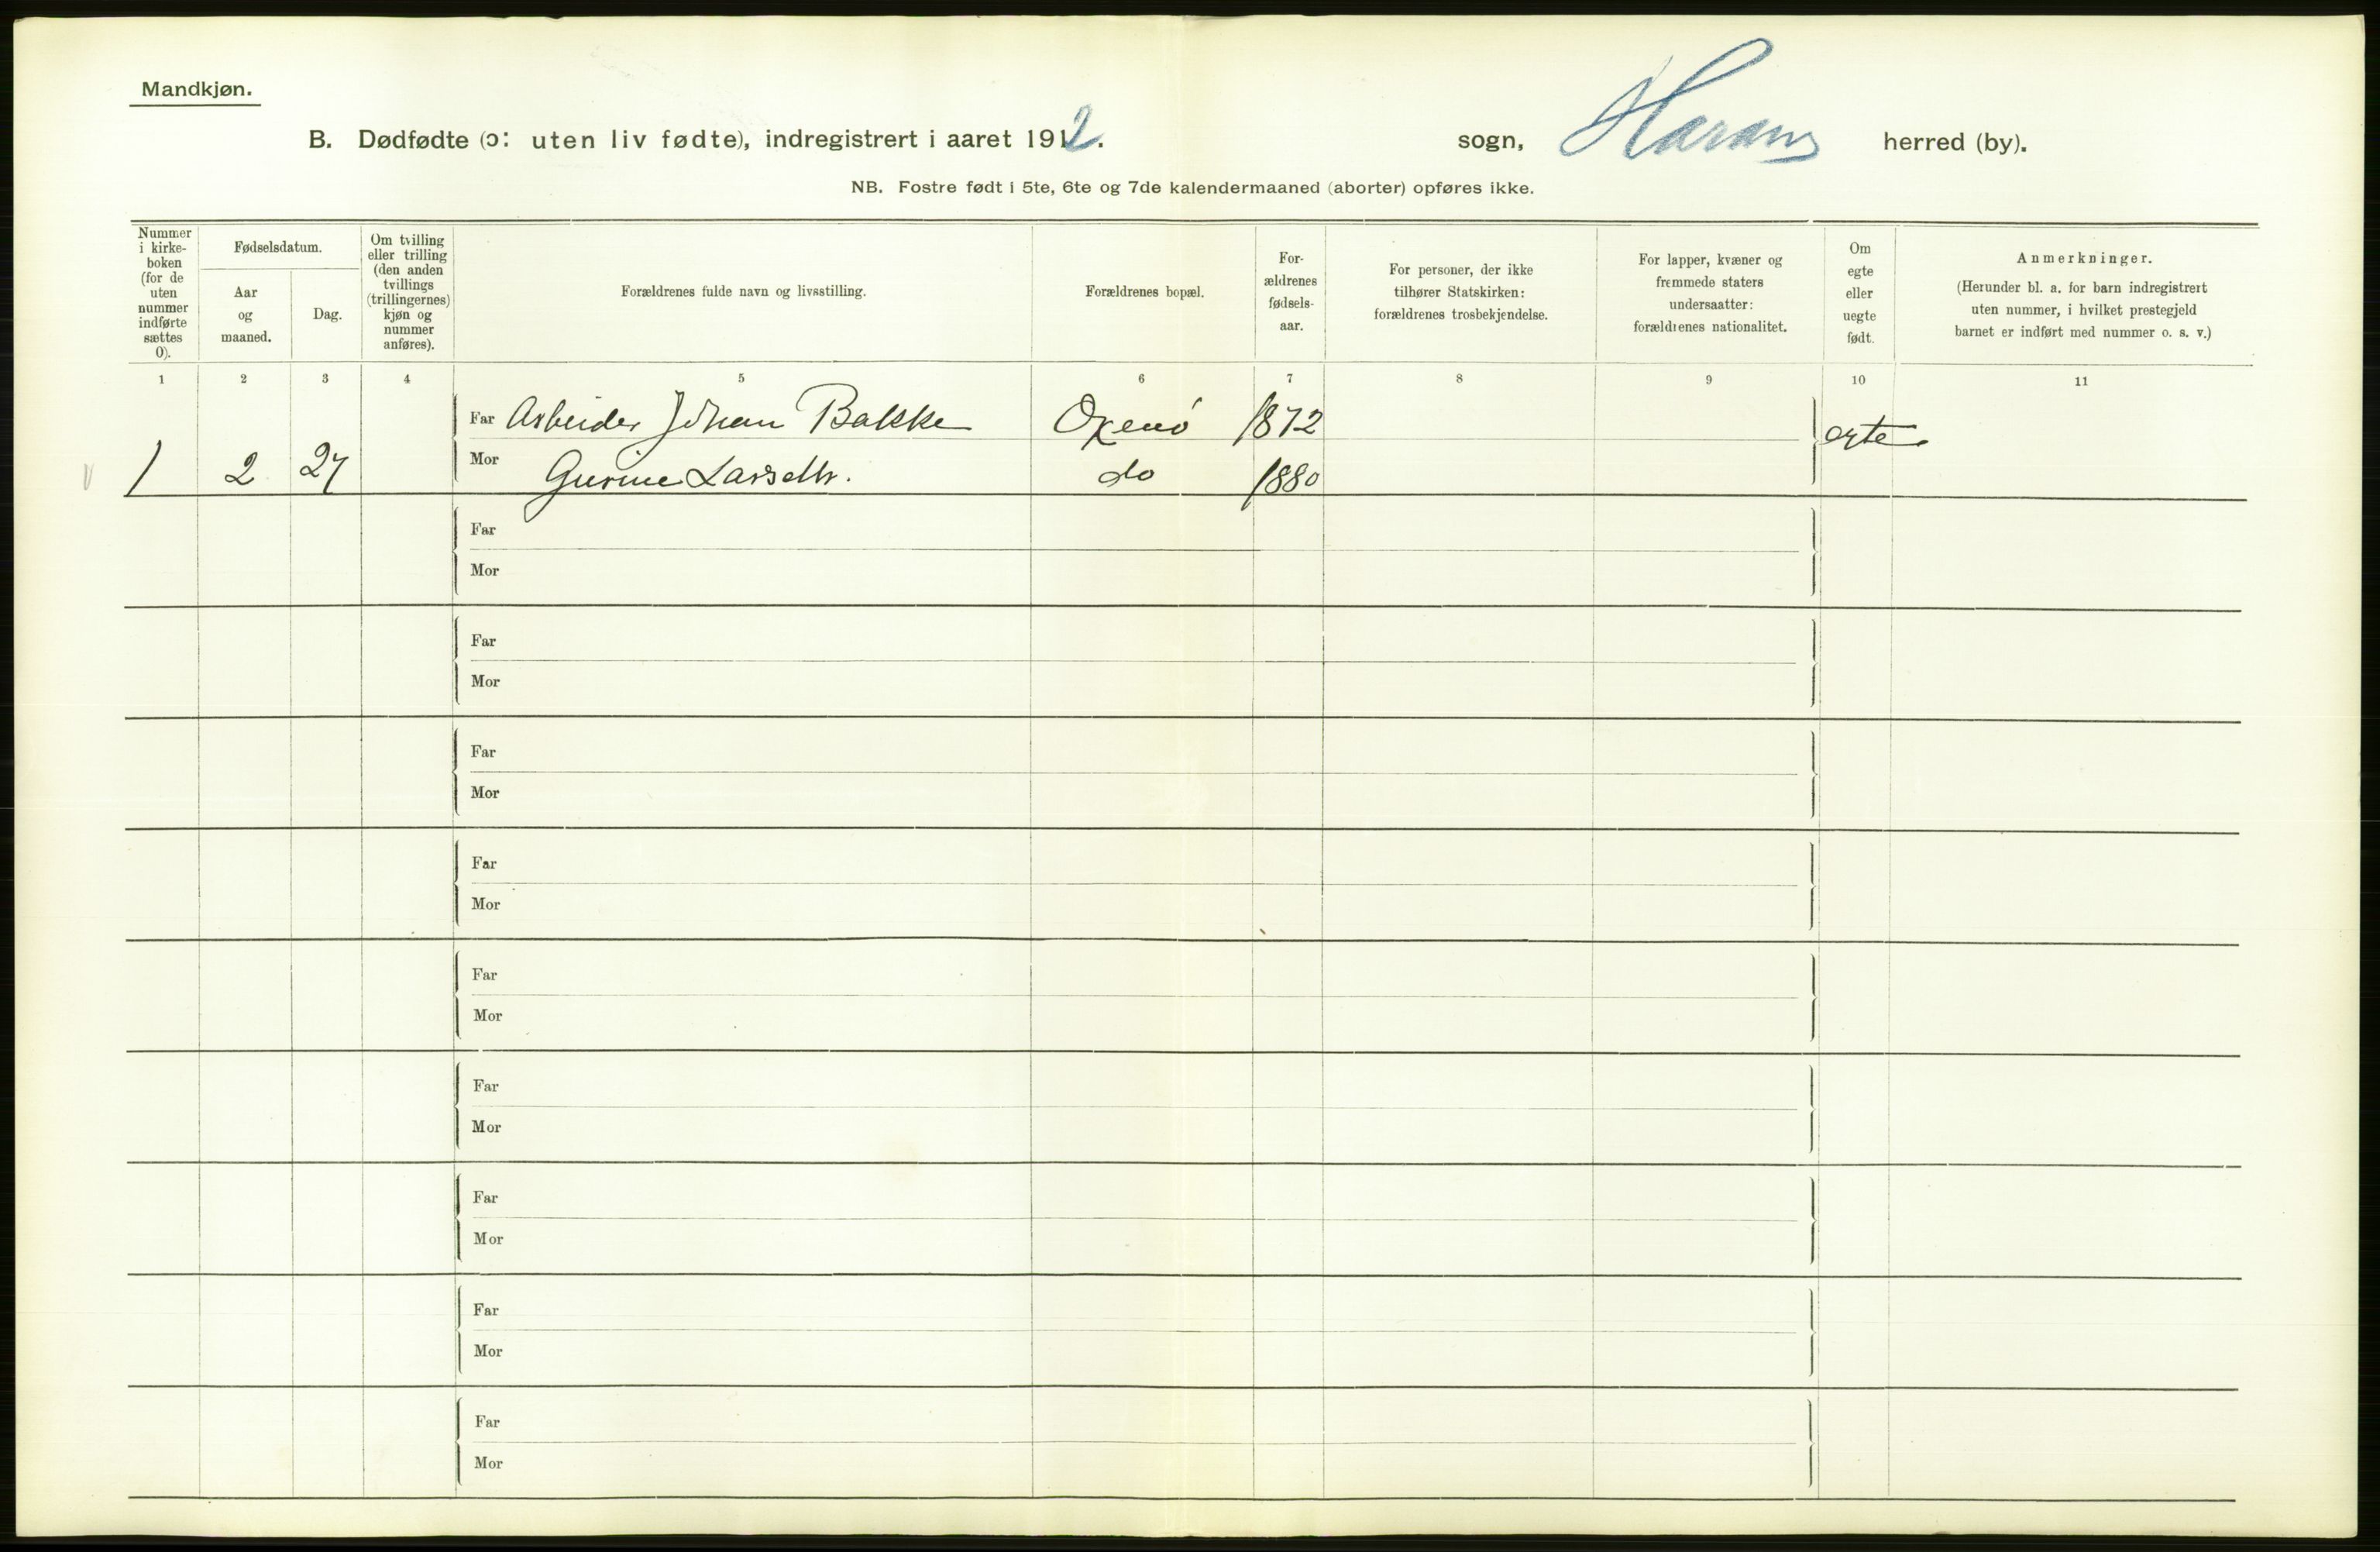 Mandkjøn.
B. Dødfødte (ɔ: uten liv fødte), indregistrert i aaret 1912.
sogn, Harams herred (by).
NB. Fostre født i 5te, 6te og 7de kalendermaaned (aborter) opføres ikke.
Nummer
i kirke-
boken
(for de
uten
nummer
indførte
sættes
0).
Fødselsdatum.
Aar
og
maaned.
Dag.
Om tvilling
eller trilling
(den anden
tvillings
(trillingernes)
kjøn og
nummer
anføres).
Forældrenes fulde navn og livsstilling.
Forældrenes bopæl.
For-
ældrenes
fødsels-
aar.
For personer, der ikke
tilhører Statskirken:
forældrenes trosbekjendelse.
For lapper, kvæner og
fremmede staters
undersaatter:
forældrenes nationalitet.
Om
egte
eller
uegte
født.
Anmerkninger.
(Herunder bl. a. for barn indregistrert
uten nummer, i hvilket prestegjeld
barnet er indført med nummer o. s. v.)
1 2 3 4 5 6 7 8 9 10 11
Far Arbeider Johan Bakke Oxenö 1872 egte.
1 2 27 Mor Gurine Larsdtr. do 1880
Far
Mor
Far
Mor
Far
Mor
Far
Mor
Far
Mor
Far
Mor
Far
Mor
Far
Mor
Far
Mor